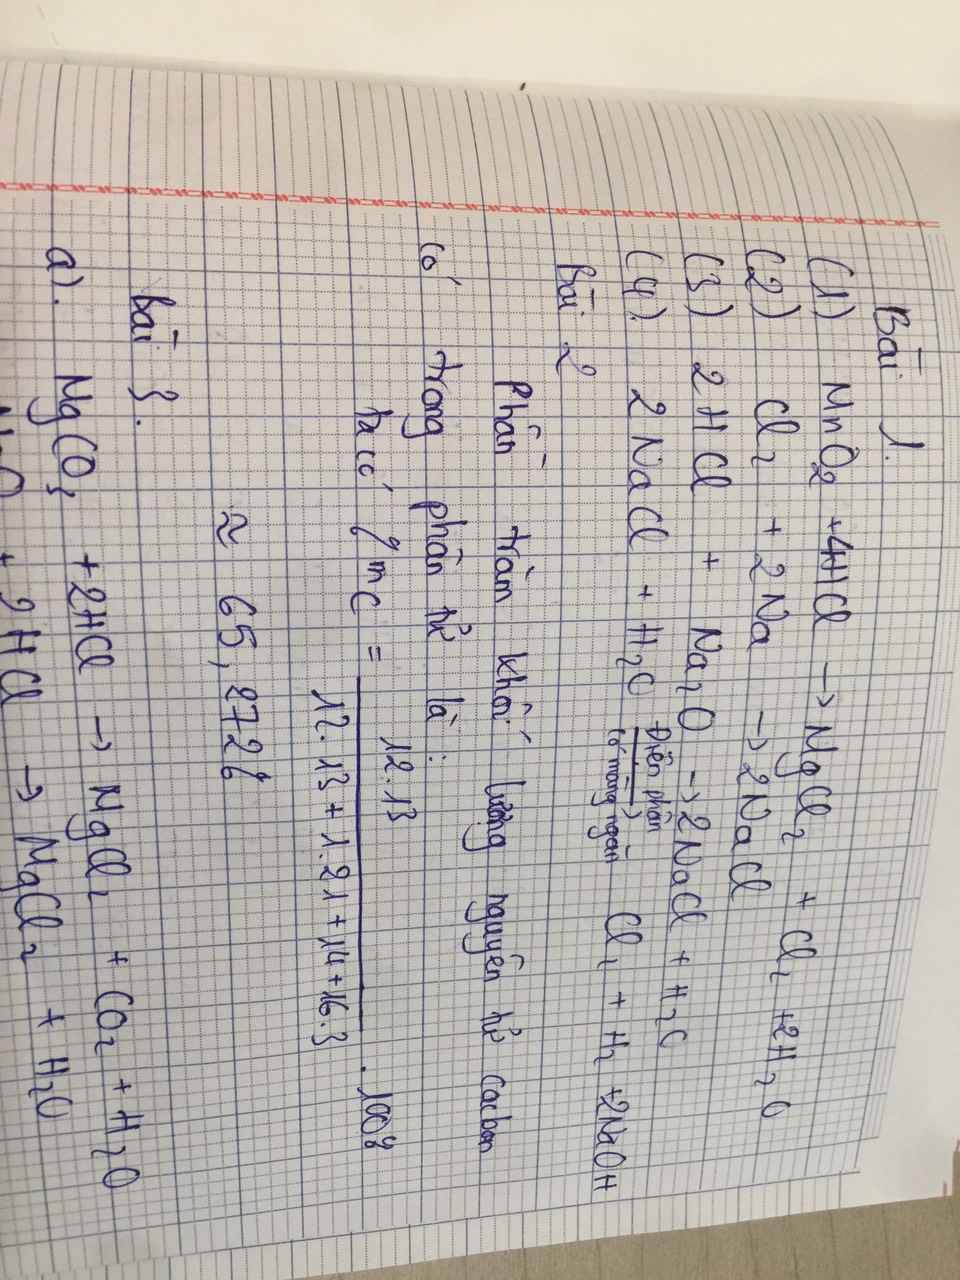 Bài 1.
(1) MnO2 + 4HCl → MgCl2 + Cl2 + 2H2O
(2) Cl2 + 2Na → 2NaCl
(3) 2HCl + Na2O → 2NaCl + H2O
(4). 2NaCl + H2O Điện phân có màng ngăn → Cl2 + H2 + 2NaOH
Bài 2
Phần trăm khối lượng nguyên tử cacbon
có trong phân tử là:
ta có % mC = 12.13 / 12.13 + 1.21 + 14 + 16.3 . 100%
≈ 65,272%
Bài 3.
a). MgCO3 + 2HCl → MgCl2 + CO2 + H2O
MgO + 2HCl → MgCl2 + H2O